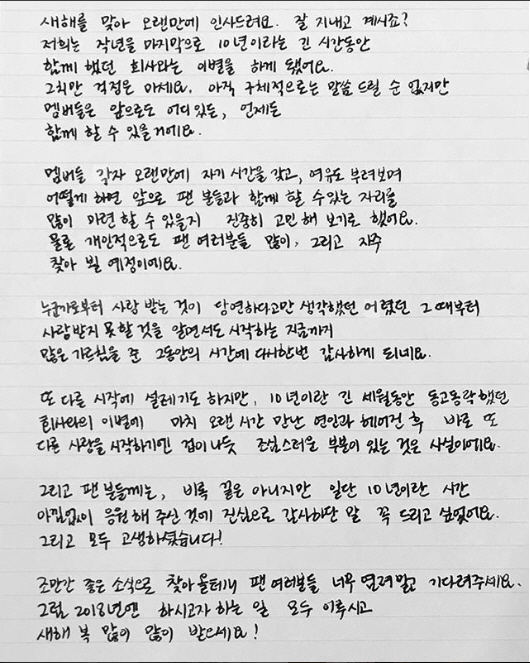 새해를 맞아 오랜만에 인사드려요. 잘 지내고 계시죠?
저희는 작년을 마지막으로 10년이라는 긴 시간동안
함께 했던 회사와는 이별을 하게 됐어요.
그치만 걱정은 마세요. 아직 구체적으로는 말씀 드릴 순 없지만
멤버들은 앞으로도 어디 있든, 언제든
함께 할 수 있을거에요.
멤버들 각자 오랜만에 자기 시간을 갖고, 여유도 부려보며
어떻게 하면 앞으로 팬 분들과 함께 할 수 있는 자리를
많이 마련 할 수 있을지 진중히 고민 해 보기로 했어요.
물론 개인적으로도 팬 여러분들 많이, 그리고 자주
찾아 뵐 예정이에요.
누군가로부터 사랑 받는 것이 당연하다고만 생각했던 어렸던 그 때부터
사랑받지 못할 것을 알면서도 시작하는 지금까지
많은 가르침을 준 그동안의 시간에 다시한번 감사하게 되네요.
또 다른 시작에 설레기도 하지만, 10년이란 긴 세월동안 동고동락했던
회사와의 이별에 마치 오랜 시간 만난 연인과 헤어진 후 바로 또
다른 사랑을 시작하기엔 겁이 나듯 조심스러운 부분이 있는 것은 사실이에요.
그리고 팬 분들께는, 비록 끝은 아니지만 일단 10년이란 시간
아낌없이 응원 해 주신 것에 진심으로 감사하단 말 꼭 드리고 싶었어요.
그리고 모두 고생하셨습니다!
조만간 좋은 소식으로 찾아 올테니 팬 여러분들 너무 염려말고 기다려주세요.
그럼 2018년엔 하시고자 하는 일 모두 이루시고
새해 복 많이 많이 받으세요!